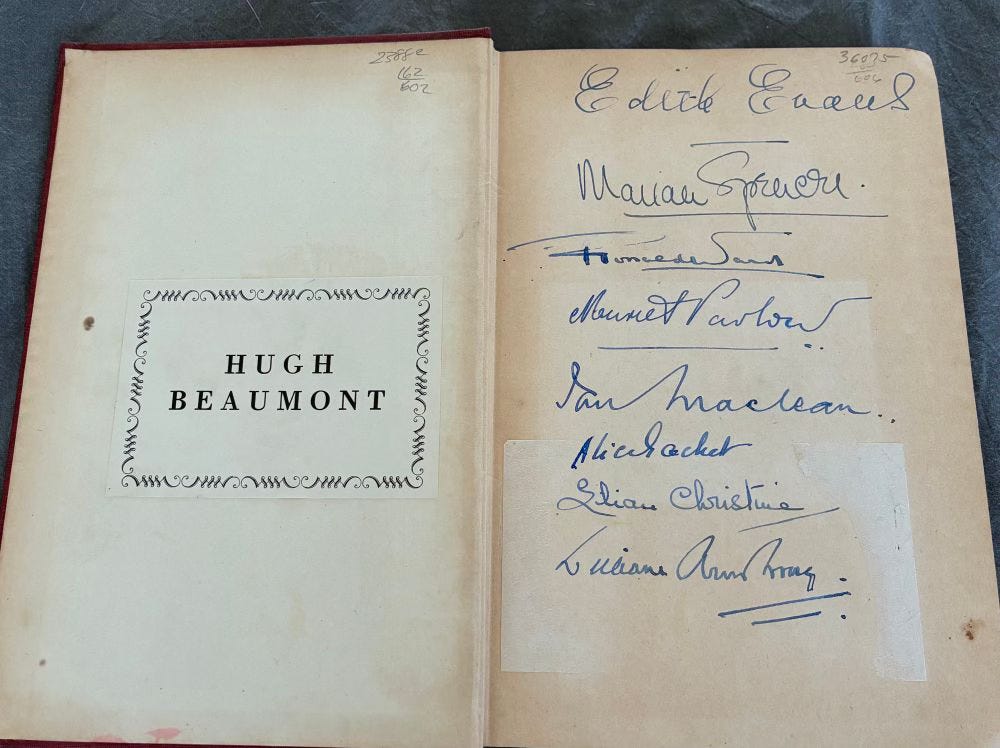 2388e
162
602
HUGH
BEAUMONT
36075
606
Edith Evans
Marian Spencer.
Muriel Pavlow
Ian Maclean.
Alice Gachet
Lilian Christine
Armstrong.